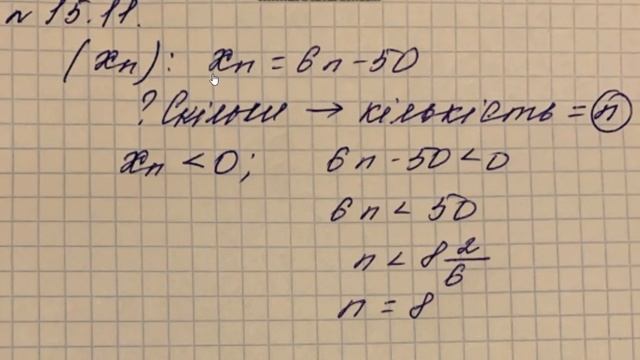 № 15.11.
(xₙ): xₙ = 6n - 50
? Скільки → кількість = n
xₙ < 0; 6n - 50 < 0
6n < 50
n < 8 2/6
n = 8